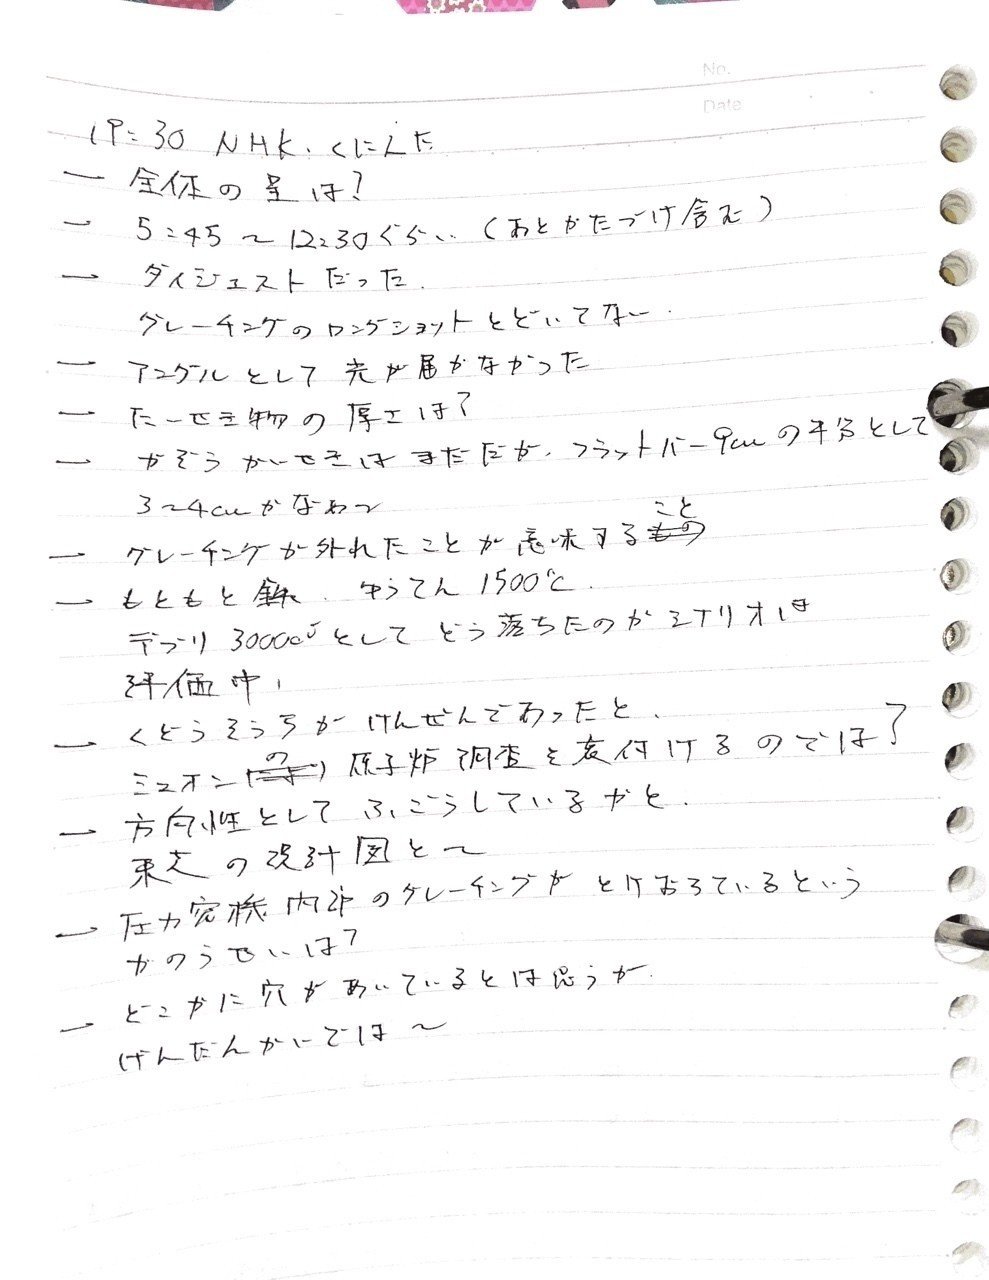 No.
Date
19:30 NHK.くにした
ー 全体の量は?
ー 5:45~12:30ぐらい(あとかたづけ含む)
ー ダイジェストだった.
グレーチングのロングショットとどいてない.
ー アングルとして光が届かなかった
ー たいせき物の厚さは?
ー がぞうかいせきはまだだが、フラットバー9cmの半分として
3~4cmかなぁ~
こと
ー グレーチングが外れたことが意味する
ー もともと鉄. ゆうてん 1500℃.
デブリ 3000℃としてどう落ちたのかシナリオは
評価中.
ー くどうそうちがけんぜんであったと.
の
ミュオン 原子炉調査を裏付けるのでは?
ー 方向性としてふごうしているかと.
東芝の設計図と~
ー 圧力容器内部のグレーチングがとけおちているという
かのうせいは?
ー どこかに穴があいているとは思うが.
げんだんかいでは~